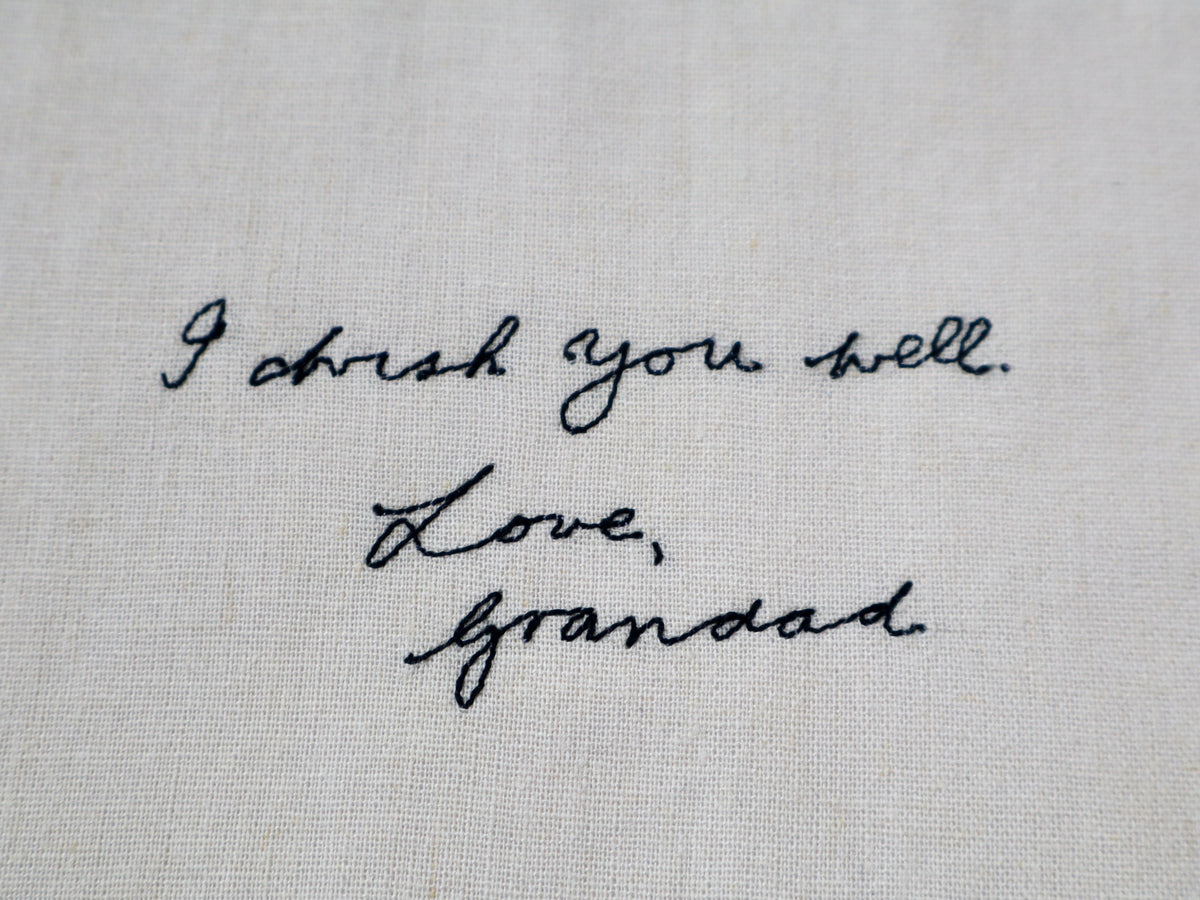 I wish you well.
Love,
Grandad